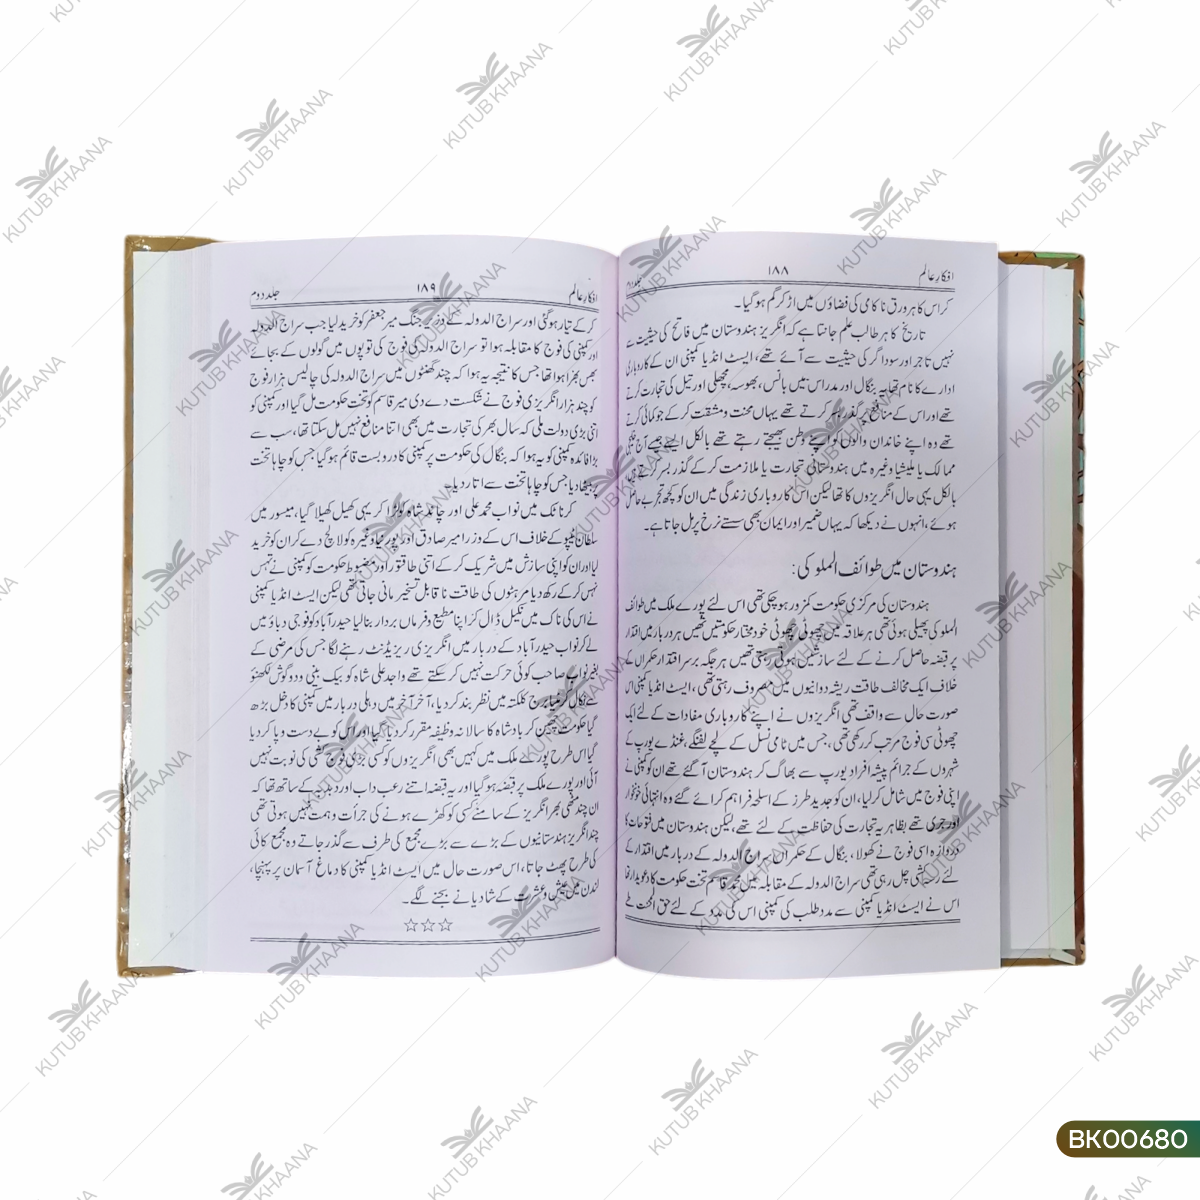 افکارِ عالم ۱۸۸ جلد دوم
کر اس کا ہر ورق ناکامی کی فضاؤں میں اڑ کر گم ہو گیا۔
تاریخ کا ہر طالب علم جانتا ہے کہ انگریز ہندوستان میں فاتح کی حیثیت سے
نہیں تاجر اور سوداگر کی حیثیت سے آئے تھے، ایسٹ انڈیا کمپنی ان کے کاروباری
ادارے کا نام تھا یہ بنگال اور مدراس میں بانس، بھوسہ، مچھلی اور تیل کی تجارت کرتے
تھے اور اس کے منافع پر گذر بسر کرتے تھے یہاں محنت ومشقت کر کے جو کمائی کرتے
تھے وہ اپنے خاندان والوں کو اپنے وطن بھیجتے رہتے تھے بالکل ایسے جیسے آج خلیجی
ممالک یا ملیشیا وغیرہ میں ہندوستانی تجارت یا ملازمت کر کے گذر بسر کرتے ہیں
بالکل یہی حال انگریزوں کا تھا لیکن اس کاروباری زندگی میں ان کو کچھ تجربے حاصل
ہوئے، انہوں نے دیکھا کہ یہاں ضمیر اور ایمان بھی سستے نرخ پر مل جاتا ہے۔
ہندوستان میں طوائف الملوکی:
ہندوستان کی مرکزی حکومت کمزور ہو چکی تھی اس لئے پورے ملک میں طوائف
الملوکی پھیلی ہوئی تھی ہر علاقہ میں چھوٹی چھوٹی خود مختار حکومتیں تھیں ہر دربار میں اقتدار
پر قبضہ حاصل کرنے کے لئے سازشیں ہوتی رہتی تھیں ہر جگہ برسر اقتدار حکمراں کے
خلاف ایک مخالف طاقت ریشہ دوانیوں میں مصروف رہتی تھی، ایسٹ انڈیا کمپنی اس
صورت حال سے واقف تھی انگریزوں نے اپنے کاروباری مفادات کے لئے ایک
چھوٹی سی فوج مرتب کر رکھی تھی، جس میں ٹامی نسل کے لچے لفنگے، غنڈے یورپ کے
شہروں کے جرائم پیشہ افراد یورپ سے بھاگ کر ہندوستان آ گئے تھے ان کو کمپنی نے
اپنی فوج میں شامل کر لیا، ان کو جدید طرز کے اسلحہ فراہم کرائے گئے وہ انتہائی خونخوار
اور جری تھے بظاہر یہ تجارت کی حفاظت کے لئے تھے، لیکن ہندوستان میں فتوحات کا
دروازہ اسی فوج نے کھولا، بنگال کے حکمراں سراج الدولہ کے دربار میں اقتدار کے
لئے رسہ کشی چل رہی تھی سراج الدولہ کے مقابلہ میں میر قاسم تخت حکومت کا دعویدار تھا
اس نے ایسٹ انڈیا کمپنی سے مدد طلب کی کمپنی اس کی مدد کے لئے حق المحنت طے
افکارِ عالم ۱۸۹ جلد دوم
کر کے تیار ہو گئی اور سراج الدولہ کے وزیر جنگ میر جعفر کو خرید لیا جب سراج الدولہ
اور کمپنی کی فوج کا مقابلہ ہوا تو سراج الدولہ کی فوج کی توپوں میں گولوں کے بجائے
بھس بھرا ہوا تھا جس کا نتیجہ یہ ہوا کہ چند گھنٹوں میں سراج الدولہ کی چالیس ہزار فوج
کو چند ہزار انگریزی فوج نے شکست دے دی میر قاسم کو تخت حکومت مل گیا اور کمپنی کو
اتنی بڑی دولت ملی کہ سال بھر کی تجارت میں بھی اتنا منافع نہیں مل سکتا تھا، سب سے
بڑا فائدہ کمپنی کو یہ ہوا کہ بنگال کی حکومت پر کمپنی کا دروبست قائم ہو گیا جس کو چاہا تخت
پر بیٹھا دیا جس کو چاہا تخت سے اتار دیا۔
کرناٹک میں نواب محمد علی اور چاند شاہ کو لڑا کر یہی کھیل کھیلا گیا، میسور میں
سلطان ٹیپو کے خلاف اس کے وزرا میر صادق اور پورنیا وغیرہ کو لالچ دے کر ان کو خرید
لیا اور ان کو اپنی سازش میں شریک کر کے اتنی طاقتور اور مضبوط حکومت کو کمپنی نے تہس
نہس کر کے رکھ دیا مرہٹوں کی طاقت ناقابل تسخیر مانی جاتی تھی لیکن ایسٹ انڈیا کمپنی
نے اس کی ناک میں نکیل ڈال کر اپنا مطیع وفرماں بردار بنا لیا حیدرآباد کو فوجی دباؤ میں
لے کر نواب حیدرآباد کے دربار میں انگریزی ریزیڈنٹ رہنے لگا جس کی مرضی کے
بغیر نواب صاحب کوئی حرکت نہیں کر سکتے تھے واجد علی شاہ کو بیک بینی ودوگوش لکھنؤ
سے نکال کر مٹیا برج کلکتہ میں نظر بند کر دیا، آخر آخر میں دہلی دربار میں کمپنی کا دخل بڑھ
گیا حکومت چھین کر بادشاہ کا سالانہ وظیفہ مقرر کر دیا گیا اور اس کو بے دست وپا کر دیا
گیا اس طرح پورے ملک میں کہیں بھی انگریزوں کو کسی بڑی فوج کشی کی نوبت نہیں
آئی اور پورے ملک پر قبضہ ہو گیا اور یہ قبضہ اتنے رعب داب اور دبدبہ کے ساتھ تھا کہ
ان چند تھی بھر انگریز کے سامنے کسی کو کھڑے ہونے کی جرأت وہمت نہیں ہوتی تھی
چند انگریز ہندوستانیوں کے بڑے سے بڑے مجمع کی طرف سے گذر جاتے وہ مجمع کائی
کی طرح پھٹ جاتا، اس صورت حال میں ایسٹ انڈیا کمپنی کا دماغ آسمان پر پہنچا،
لندن میں عیش وعشرت کے شادیانے بجنے لگے۔
☆☆☆
KUTUB KHAANA
BK00680